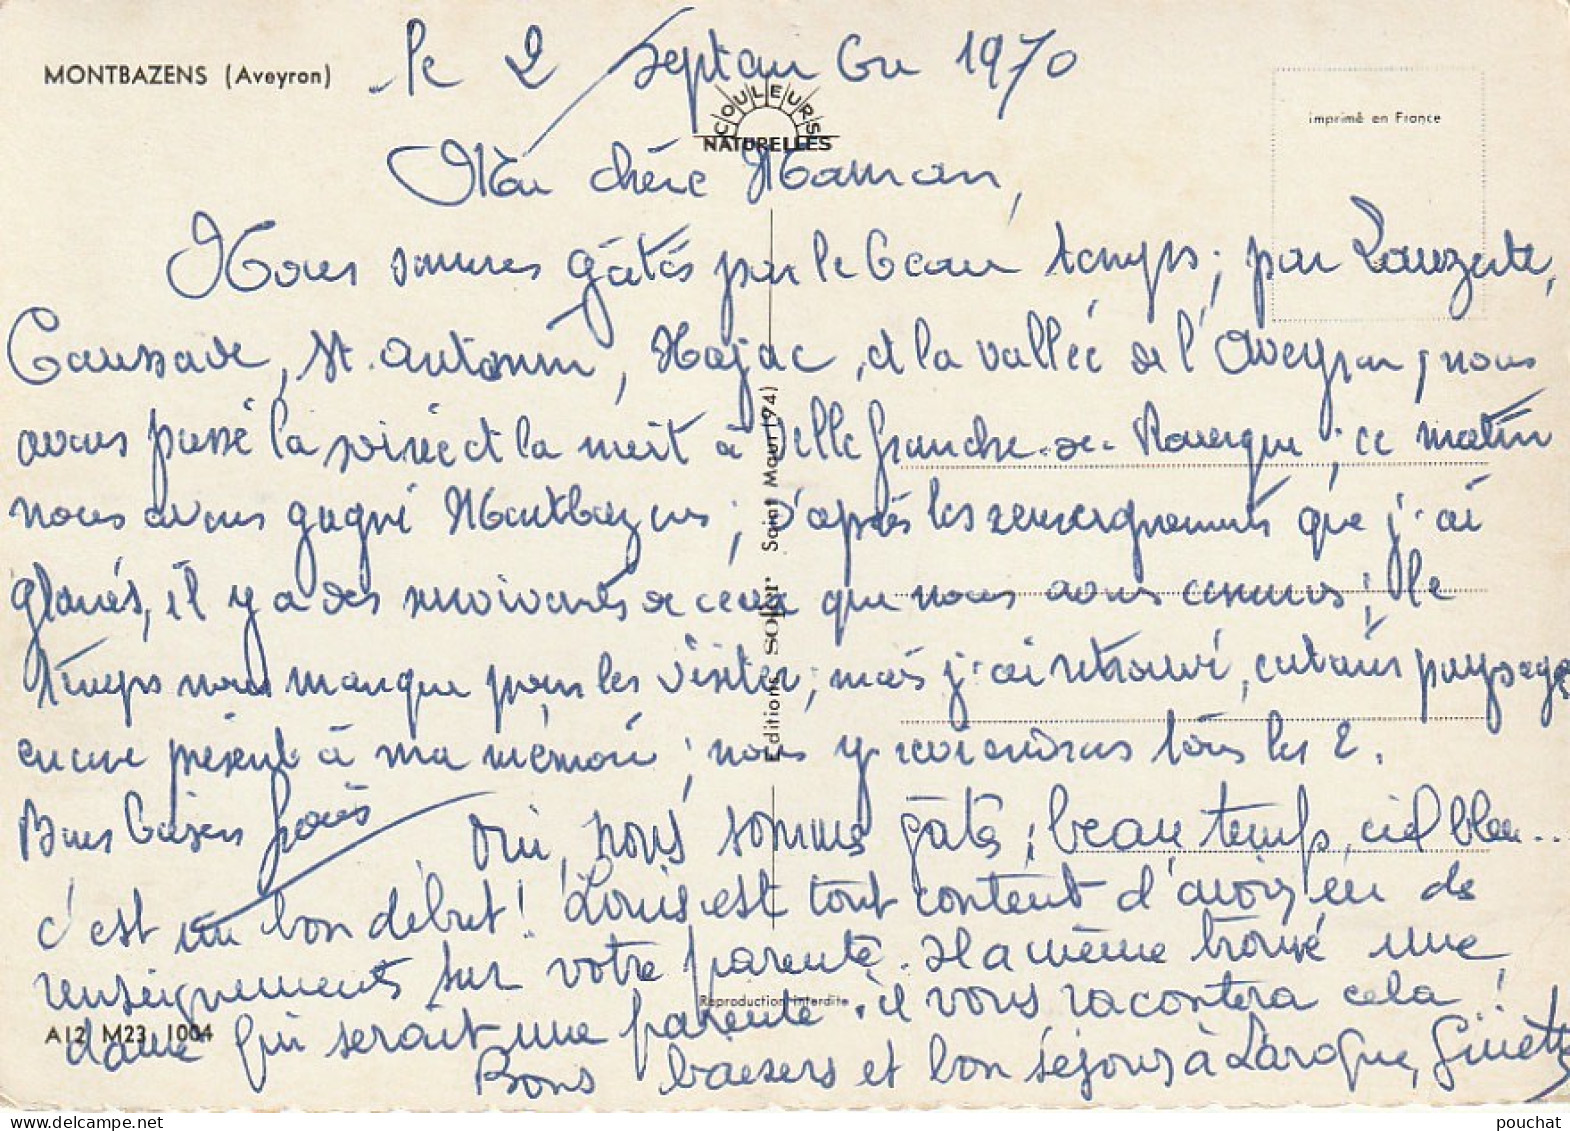 MONTBAZENS (Aveyron)
le 2 septembre 1970
imprimé en France
COULEURS
NATURELLES
Ma chère Maman,
Nous sommes gâtés par le beau temps ; par Lauzerte,
Caussade, St. Antonin, Najac, et la vallée de l'Aveyron ; nous
avons passé la soirée et la nuit à Villefranche-de-Rouergue ; ce matin
nous avons gagné Montbazens ; d'après les renseignements que j'ai
glanés, il y a des survivants de ceux que nous avons connus ; le
temps nous manque pour les visiter ; mais j'ai retrouvé, certains paysages
encore présents à ma mémoire ; nous y reviendrons tous les 2.
Bons baisers
Oui, nous sommes gâtés ; beau temps, ciel bleu...
c'est un bon début ! Louis est tout content d'avoir eu des
renseignements sur votre parenté. Il a même trouvé une
dame qui serait une parente. il vous racontera cela !
Bons baisers et bon séjour à Laroque, Ginette
Editions SOFER Saint Maur (94)
Reproduction interdite
A12 M23 1004
pouchat